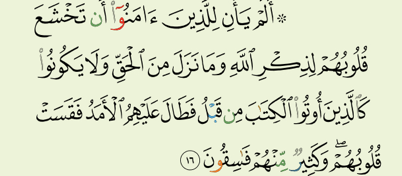 ۞ أَلَمْ يَأْنِ لِلَّذِينَ ءَامَنُوٓا۟ أَن تَخْشَعَ
قُلُوبُهُمْ لِذِكْرِ ٱللَّهِ وَمَا نَزَلَ مِنَ ٱلْحَقِّ وَلَا يَكُونُوا۟
كَٱلَّذِينَ أُوتُوا۟ ٱلْكِتَٰبَ مِن قَبْلُ فَطَالَ عَلَيْهِمُ ٱلْأَمَدُ فَقَسَتْ
قُلُوبُهُمْ ۖ وَكَثِيرٌ مِّنْهُمْ فَٰسِقُونَ ١٦